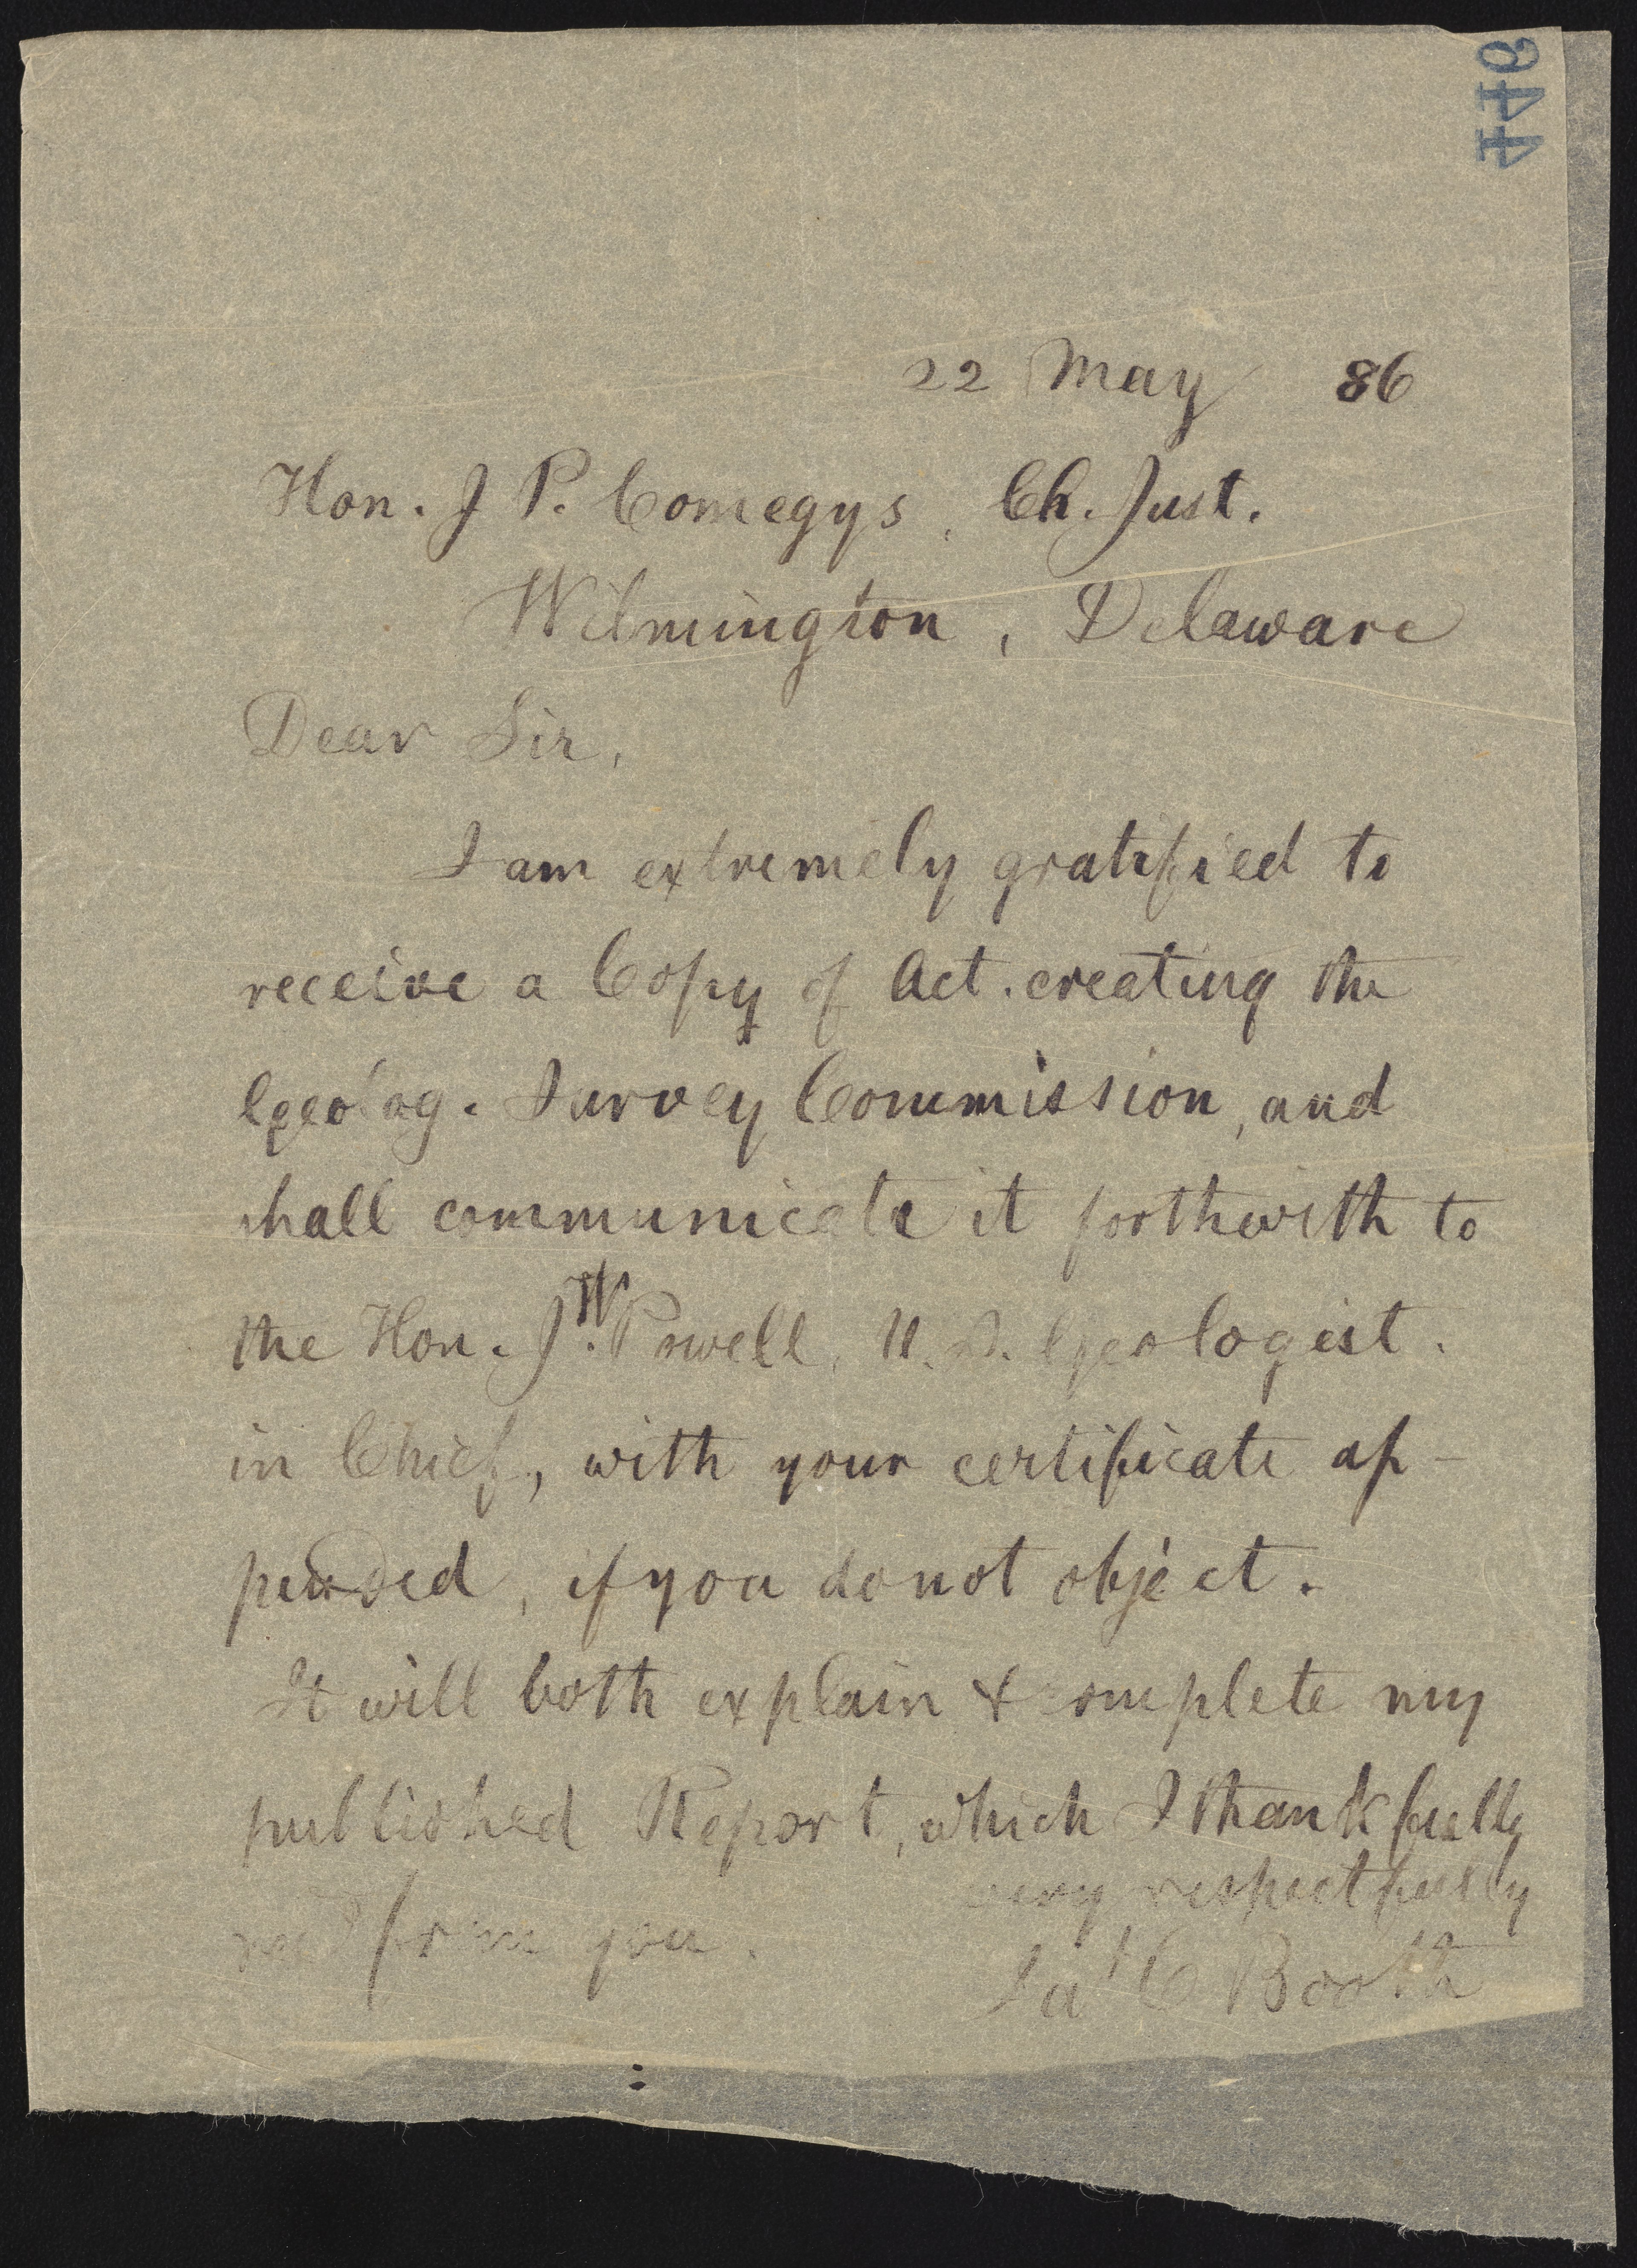 446
22 May 86
Hon. J P. Comegys, Ch. Just.
Wilmington, Delaware
Dear Sir,
I am extremely gratified to
receive a Copy of Act. creating the
Geolog. Survey Commission, and
shall communicate it forthwith to
the Hon. J. W. Powell, U.S. Geologist.
in Chief, with your certificate ap-
pended, if you do not object.
It will both explain & complete my
published Report, which I thankfully
recd from you.
very respectfully
Jas C Booth